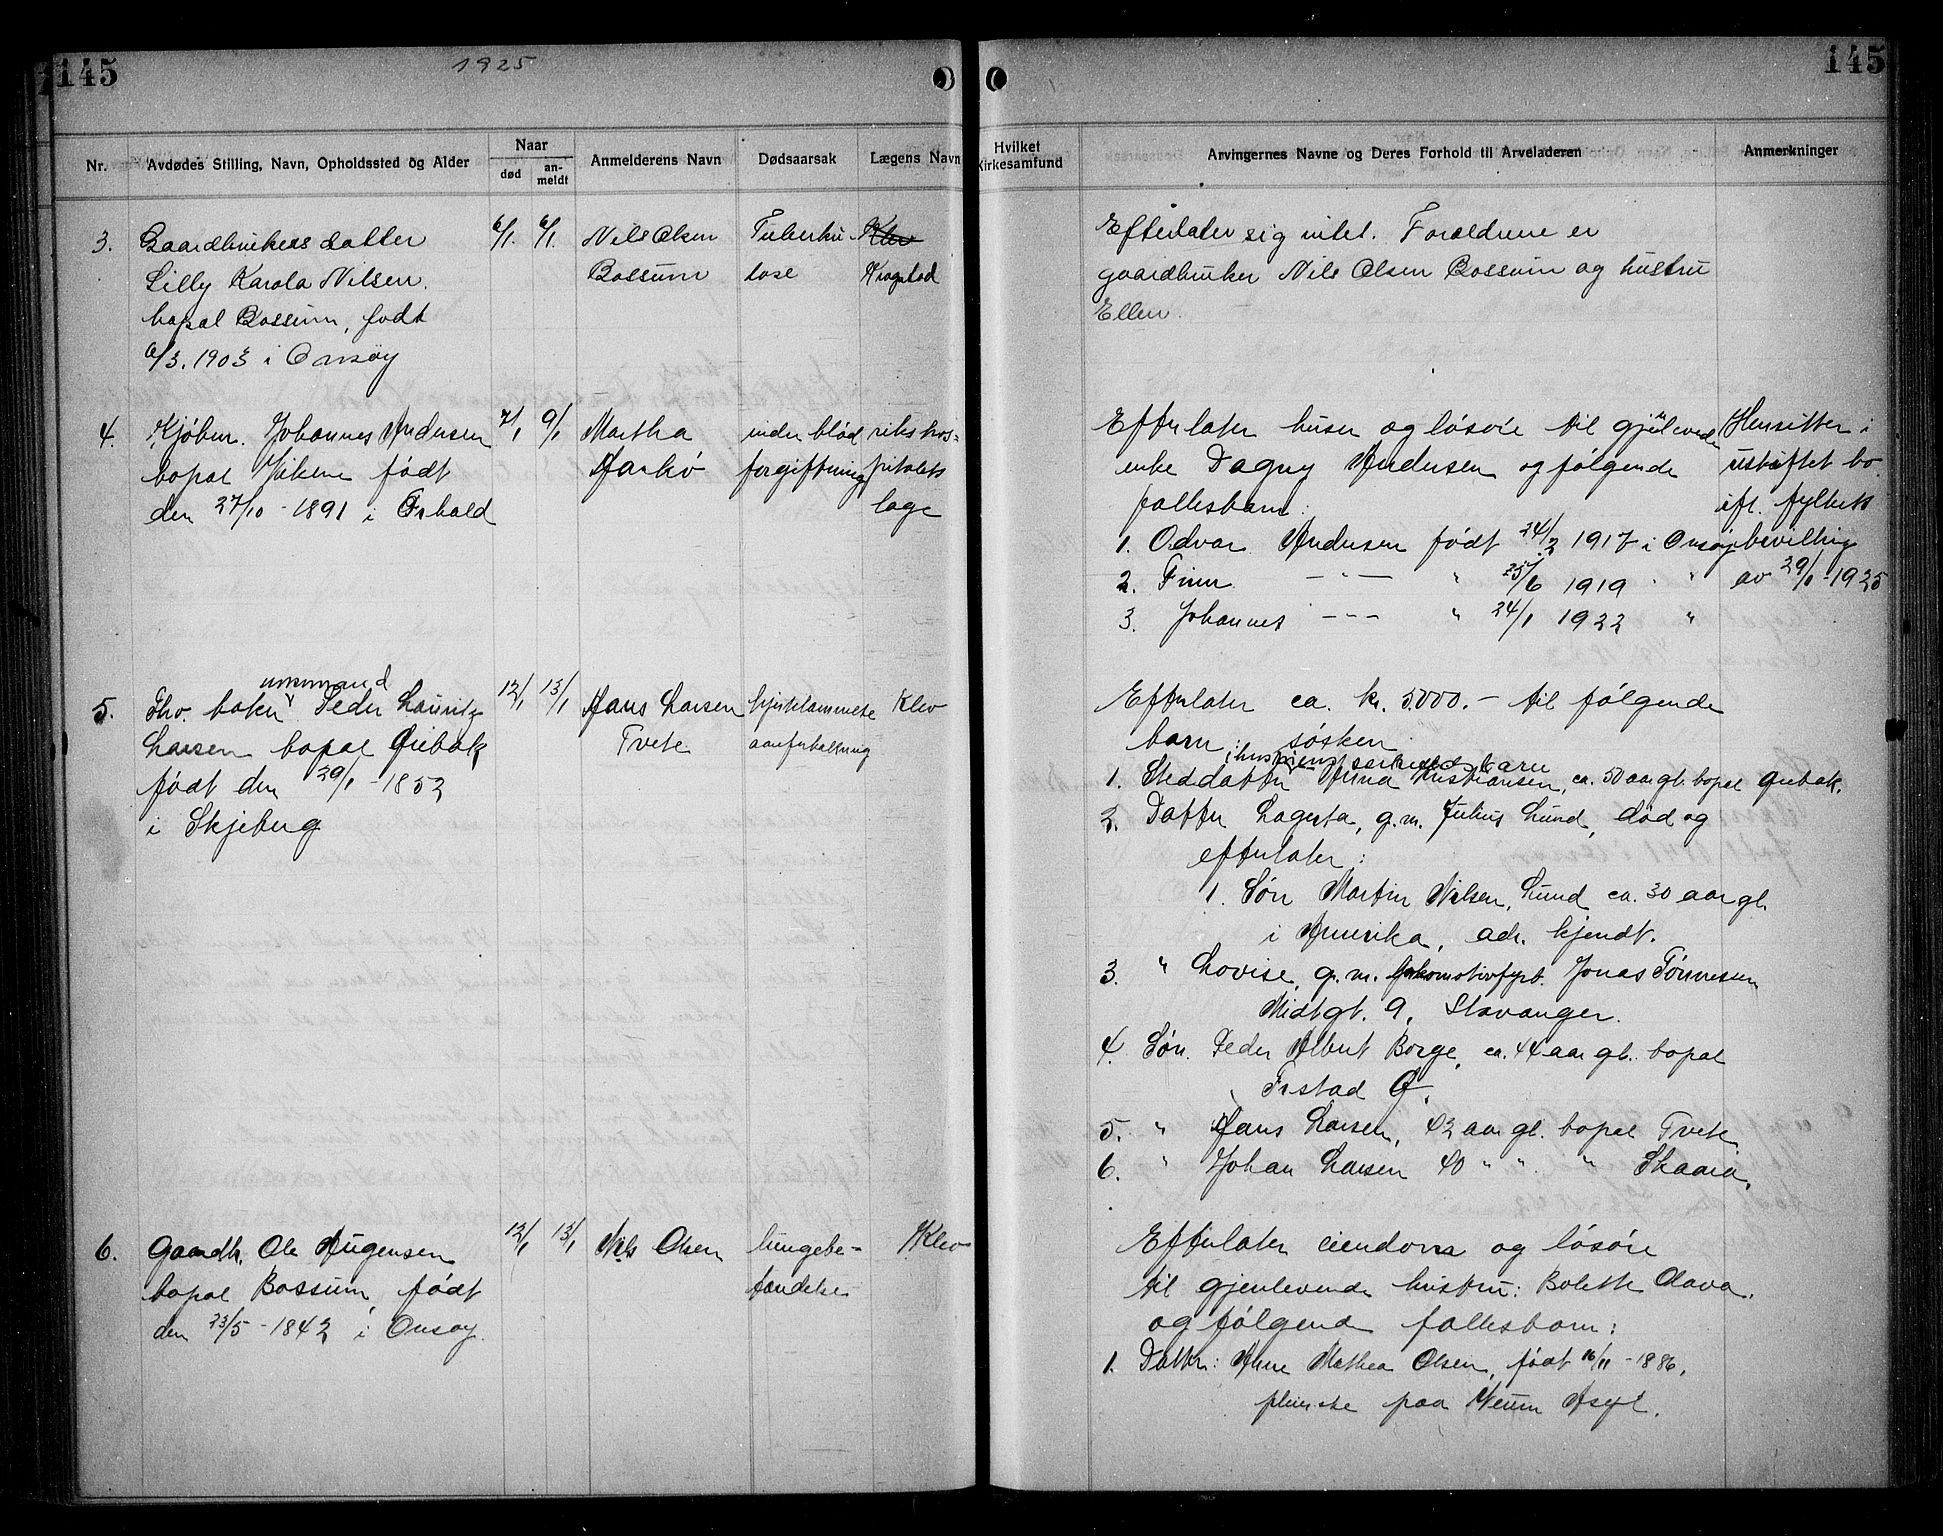 145
1925
145
Nr.
Avdødes Stilling, Navn, Opholdssted og Alder
Naar
død
an-
meldt
Anmelderens Navn
Dødsaarsak
Lægens Navn
Hvilket
Kirkesamfund
Arvingernes Navne og Deres Forhold til Arveladeren
Anmerkninger
3.
Gaardbrukers datter
Lilly Karola Nilsen.
bopæl Bossum, født
6/3. 1903 i Onsøy
6/1.
6/1.
Nils Olsen
Bossum
Tuberku-
lose
Klev
Krogstad
Efterlater sig intet. Forældrene er
gaardbruker Nils Olsen Bossum og hustru
Ellen.
4.
Kjøbm. Johannes Andersen
bopæl Viken født
den 27/10 - 1891 i Orbald
7/1
9/1
Martha
Hankø
under blod
forgiftning
rikshos-
pitalets
læge
Efterlater huser og løsøre til gjenlevende
enke Dagny Andersen og følgende
fællesbarn:
1. Odvar Andersen født 24/2 1917 i Onsøy
2. Finn — " — " 25/6 1919 " "
3. Johannes — " — " 24/1 1922 "
Hensitter i
uskiftet bo
ifl. fylkets
bevilling
av 29/1 - 1925
5.
ungmand
Fhv. baker Peder Lauritz
Larsen bopæl Ørebæk
født den 29/1 - 1852
i Skjeberg
12/1
13/1
Hans Larsen
Tvete
hjertelammelse
aareforkalkning
Klev
Efterlater ca. kr. 5000.- til følgende
barn: søsken
1. Steddatter Anna Kristiansen, ca. 50 aar gl. bopæl Ørebæk.
2. Datter Lagerta, g.m. Julius Lund, død og
efterlater:
1. Søn Martin Nilsen, Lund ca. 30 aar gl.
i Amerika, adr. kjendt.
3. " Lovise, g.m. lokomotivfyrb. Jonas Tønnesen
Midtgt. 9, Stavanger.
4. Søn. Peder Albert Borge, ca. 44 aar gl. bopæl
Trstad Ø.
5. " Hans Larsen, 42 aar gl. bopæl Tvete
6. " Johan Larsen 40 " " " Skaara.
6.
Gaardbr. Ole Augensen
bopæl Bossum, født
den 23/5 - 1842 i Onsøy.
12/1
13/1
Nils Olsen
lungebe-
tændelse
Klev
Efterlater eiendom og løsøre
til gjenlevende hustru: Bolette Olava.
og følgende fællesbarn:
1. Datter: Anne Mathea Olsen, født 16/11 - 1886,
pleierske paa Veum Asyl.